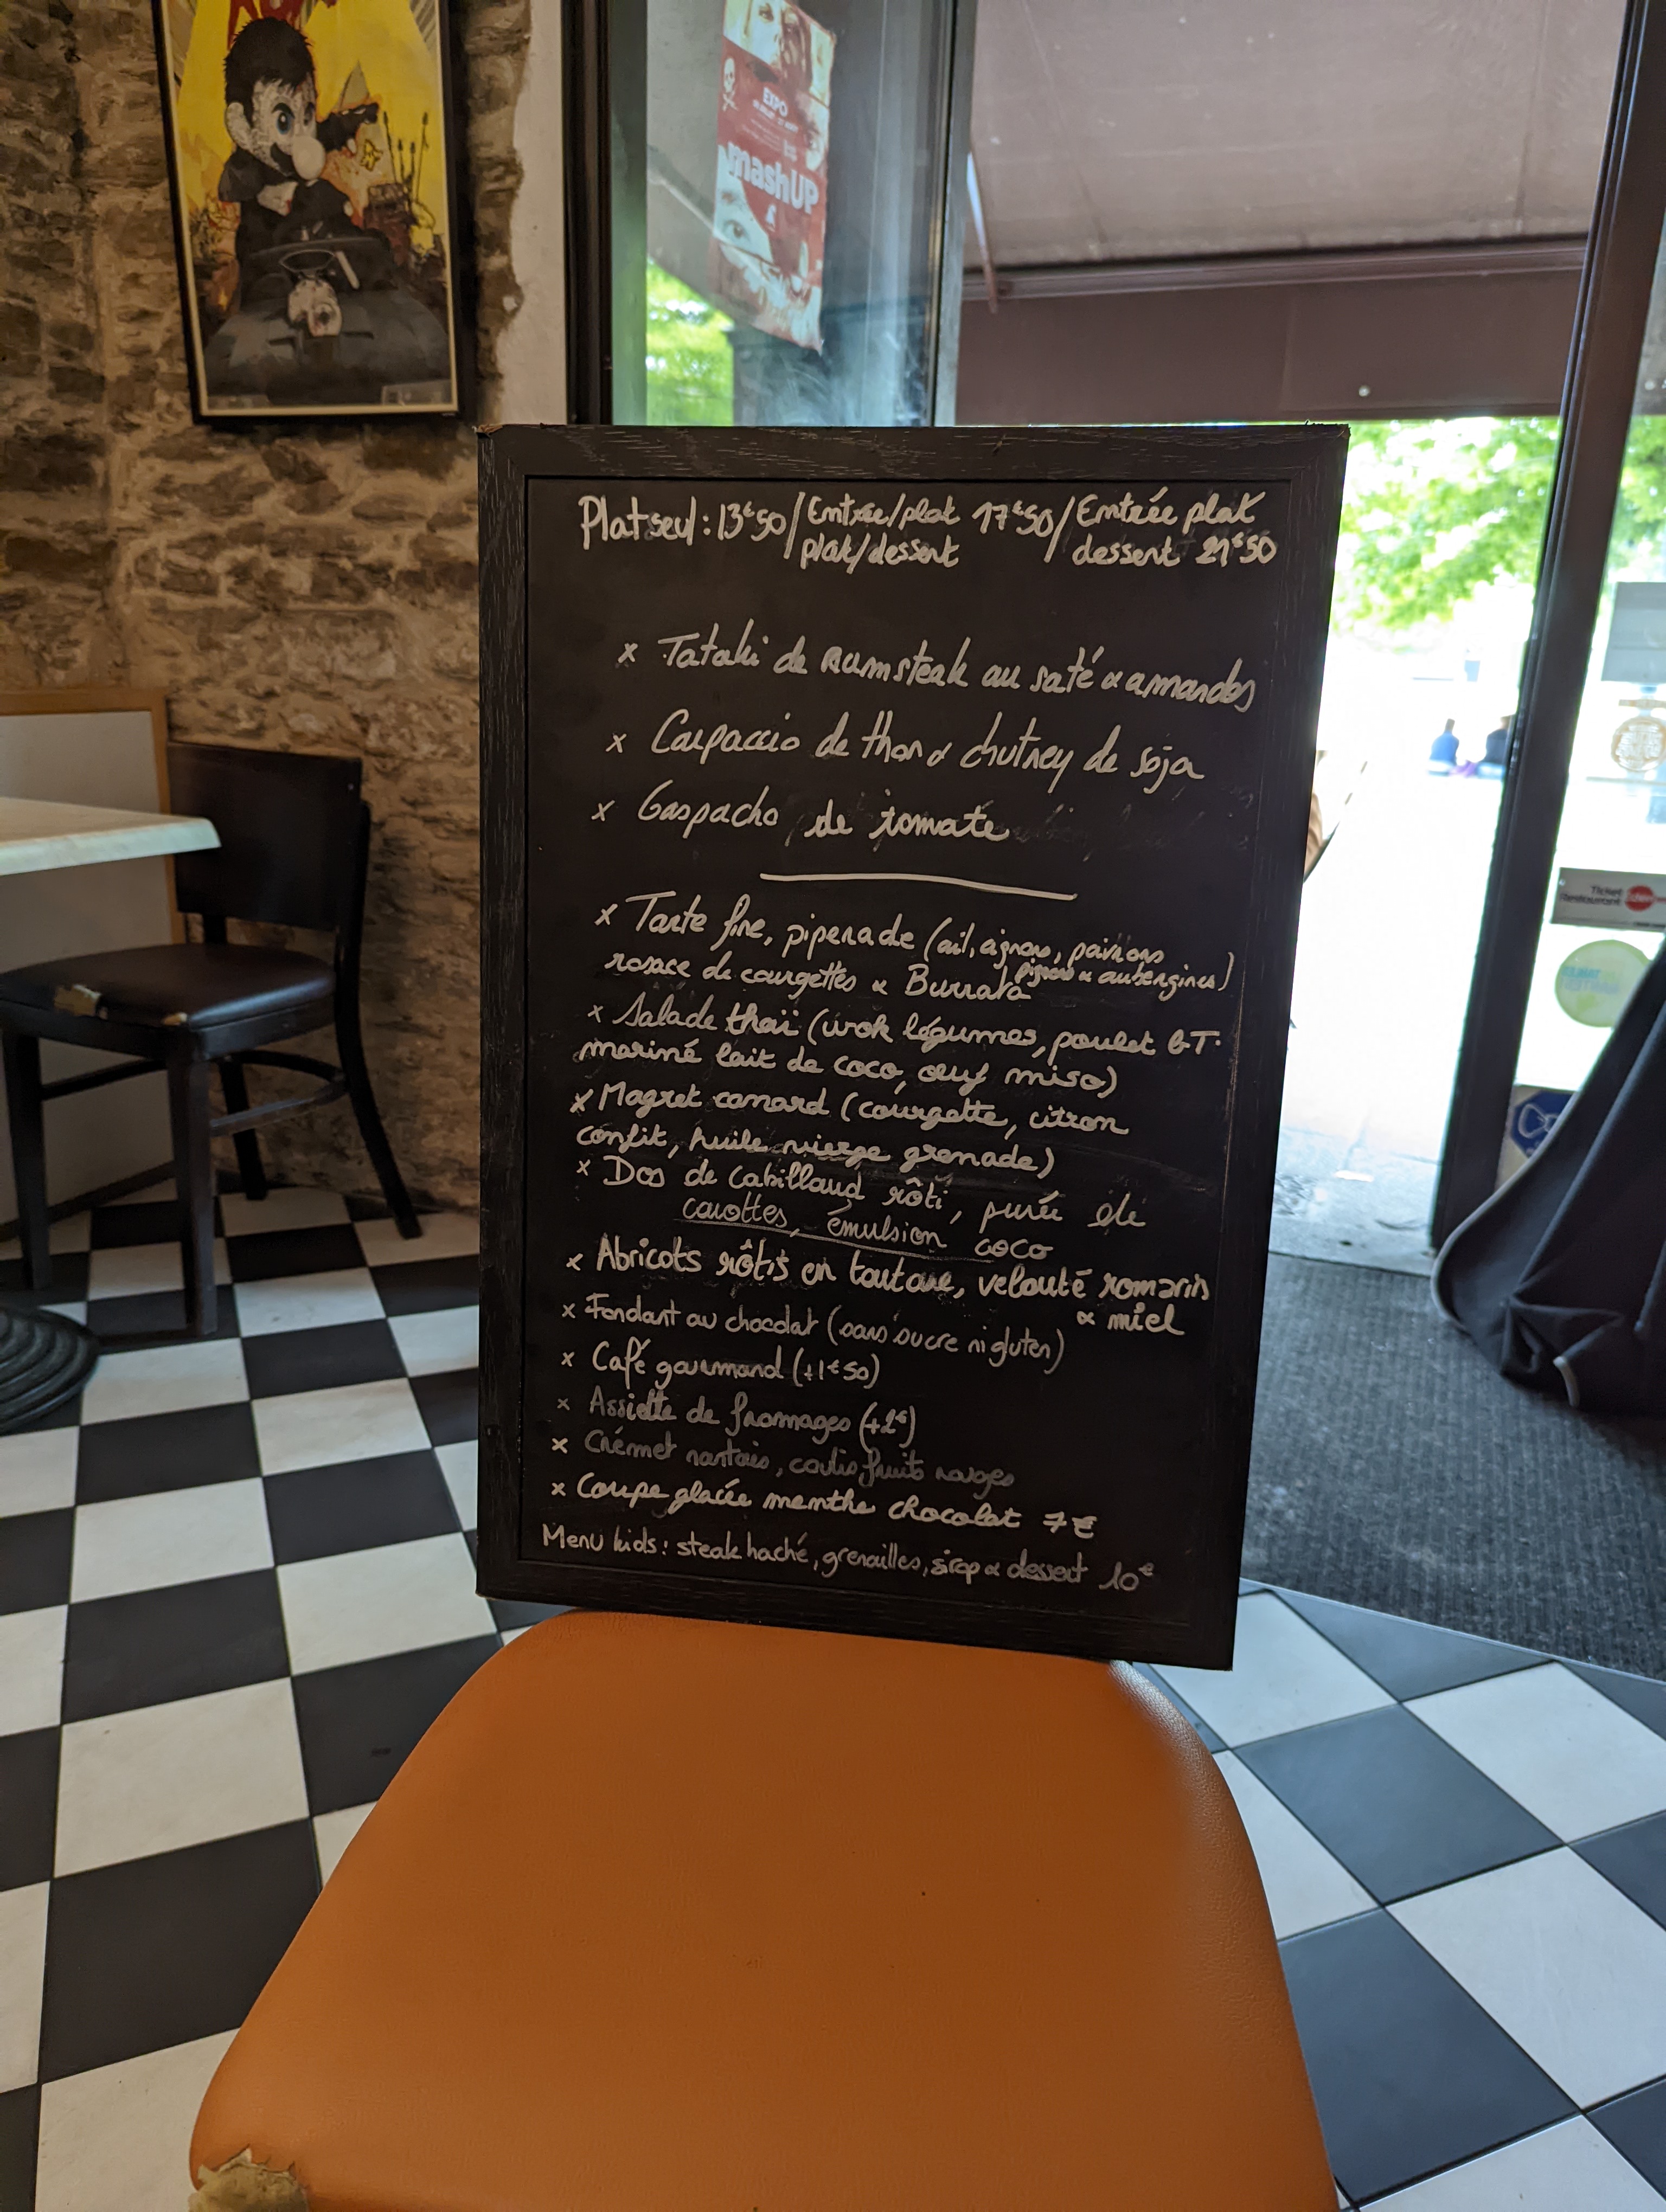 EXPO
mashUP
Plat seul : 13€50 / Entrée/plat 17€50 / Entrée plat
plat/dessert dessert 21€50
x Tataki de rumsteak au saté & amandes
x Carpaccio de thon & chutney de soja
x Gaspacho de tomate
x Tarte fine, piperade (ail, oignons, poivrons
pignons & aubergines)
rosace de courgettes & Burrata
x Salade thaï (wok légumes, poulet B.T.
mariné lait de coco, œuf miso)
x Magret canard (courgette, citron
confit, huile vierge grenade)
x Dos de cabillaud rôti, purée de
carottes, émulsion coco
x Abricots rôtis en tartare, velouté romarin
& miel
x Fondant au chocolat (sans sucre ni gluten)
x Café gourmand (+1€50)
x Assiette de fromages (+2€)
x Crémet nantais, coulis fruits rouges
x Coupe glacée menthe chocolat 7€
Menu kids : steak haché, grenailles, sirop & dessert 10€
Ticket
Restaurant